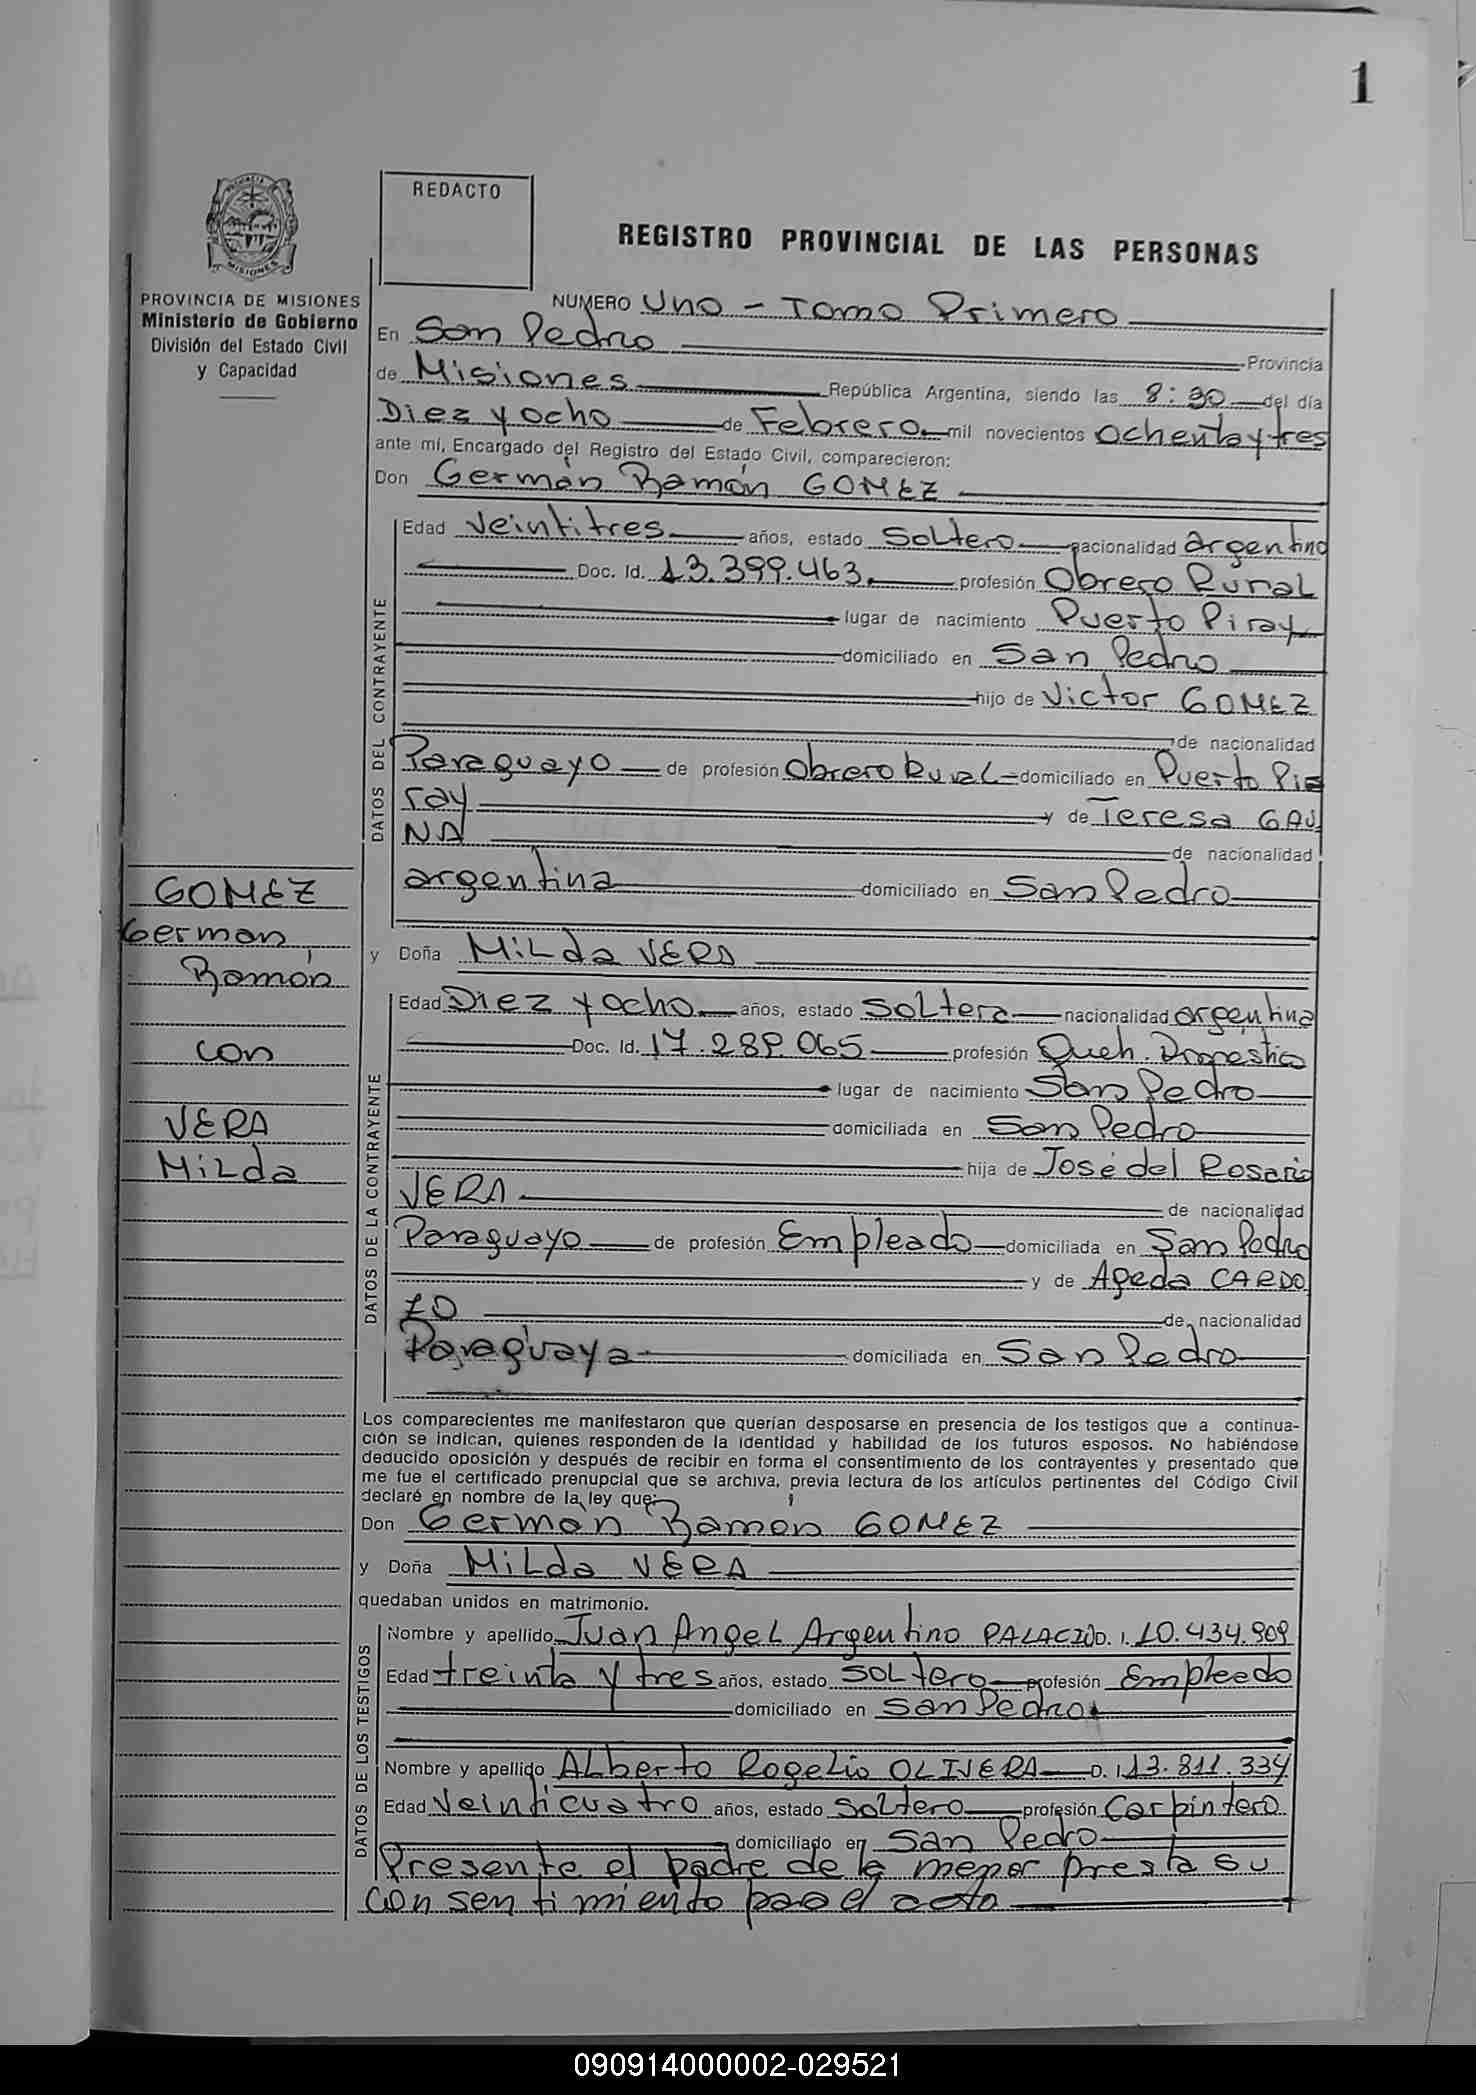 1
REDACTO
REGISTRO PROVINCIAL DE LAS PERSONAS
PROVINCIA DE MISIONES
Ministerio de Gobierno
División del Estado Civil
y Capacidad
NUMERO Uno - Tomo Primero
En San Pedro Provincia
de Misiones República Argentina, siendo las 8:30 del día
Diez y ocho de Febrero mil novecientos ochentaytres
ante mí, Encargado del Registro del Estado Civil, comparecieron:
Don Germán Ramón GOMEZ
DATOS DEL CONTRAYENTE
Edad Veintitres años, estado Soltero nacionalidad argentino
Doc. Id. 13.399.463. profesión Obrero Rural
lugar de nacimiento Puerto Piray
domiciliado en San Pedro
hijo de Victor GOMEZ
de nacionalidad
Paraguayo de profesión Obrero Rural domiciliado en Puerto Pi=
ray y de Teresa GAU
NA de nacionalidad
argentina domiciliado en San Pedro
GOMEZ
German
Ramón
con
VERA
Milda
y Doña Milda VERA
DATOS DE LA CONTRAYENTE
Edad Diez y ocho años, estado Soltera nacionalidad argentina
Doc. Id. 17.289.065 profesión Queh. Domestico
lugar de nacimiento San Pedro
domiciliada en San Pedro
hija de José del Rosario
VERA de nacionalidad
Paraguayo de profesión Empleado domiciliada en San Pedro
y de Ageda CARDO
ZO de nacionalidad
Paraguaya domiciliada en San Pedro
Los comparecientes me manifestaron que querían desposarse en presencia de los testigos que a continua-
ción se indican, quienes responden de la identidad y habilidad de los futuros esposos. No habiéndose
deducido oposición y después de recibir en forma el consentimiento de los contrayentes y presentado que
me fue el certificado prenupcial que se archiva, previa lectura de los artículos pertinentes del Código Civil
declaré en nombre de la ley que:
Don German Ramón GOMEZ
y Doña Milda VERA
quedaban unidos en matrimonio.
DATOS DE LOS TESTIGOS
Nombre y apellido Juan Angel Argentino PALACIO D. I. 10.434.909
Edad treinta y tres años, estado Soltero profesión Empleado
domiciliado en San Pedro
Nombre y apellido Alberto Rogelio OLIVERA D. I. 13.811.334
Edad Veinticuatro años, estado Soltero profesión Carpintero
domiciliado en San Pedro
Presente el padre de la menor presta su
consentimiento para el acto
090914000002-029521